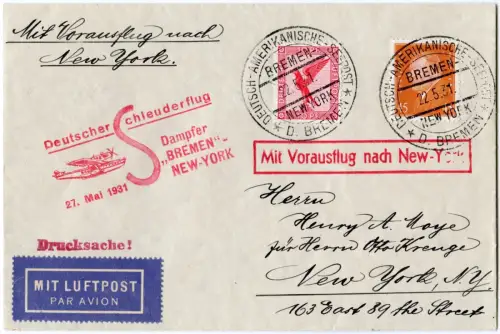 Mit Vorausflug nach
New York.
DEUTSCH-AMERIKANISCHE-SEEPOST
BREMEN-
NEW YORK
* D. BREMEN *
DEUTSCH-AMERIKANISCHE-SEEPOST
BREMEN-
22.5.31
NEW YORK
* D. BREMEN *
15
Deutscher Schleuderflug
Dampfer
„BREMEN"-
NEW-YORK
27. Mai 1931
Mit Vorausflug nach New-York
Drucksache!
MIT LUFTPOST
PAR AVION
Herrn
Henry A. Meye
für Herrn Otto Krenge
New York, N.Y.
163 East 89 the Street